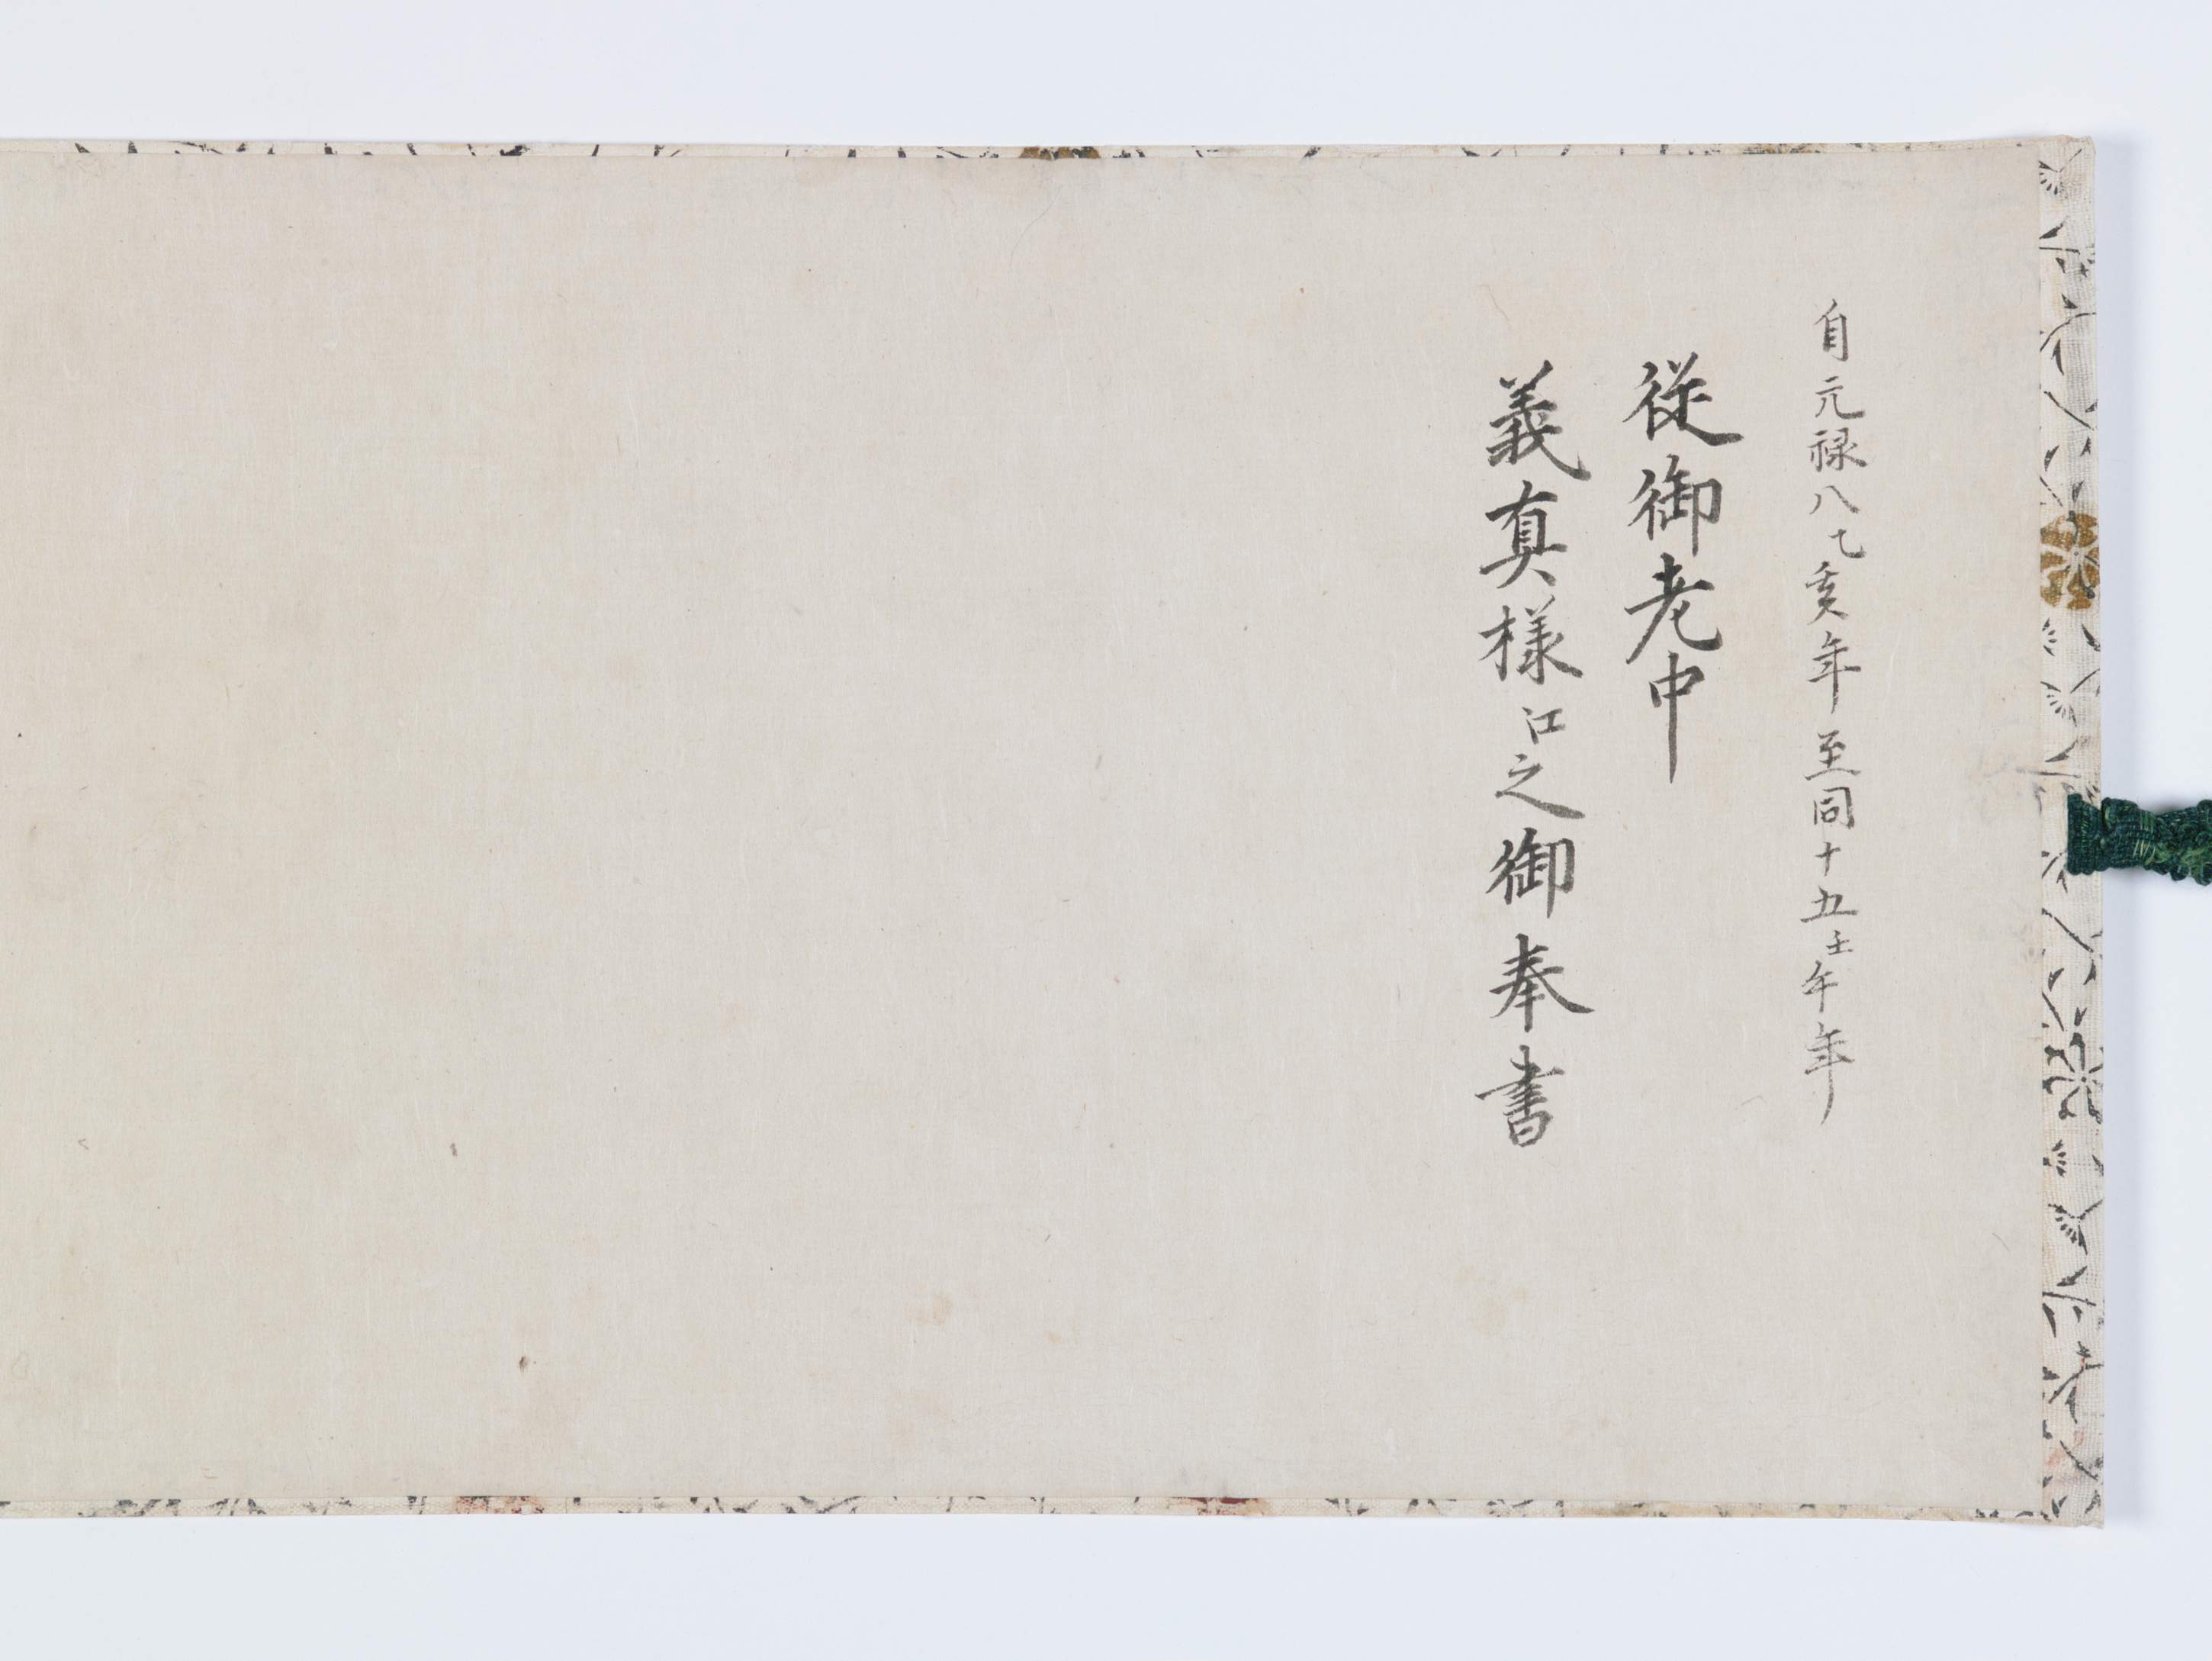 自元禄八乙亥年至同十五壬午年
従御老中
義真様江之御奉書